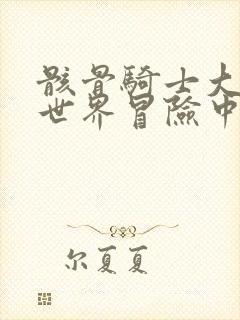 骸骨騎士大
世界冒險中
尔夏夏